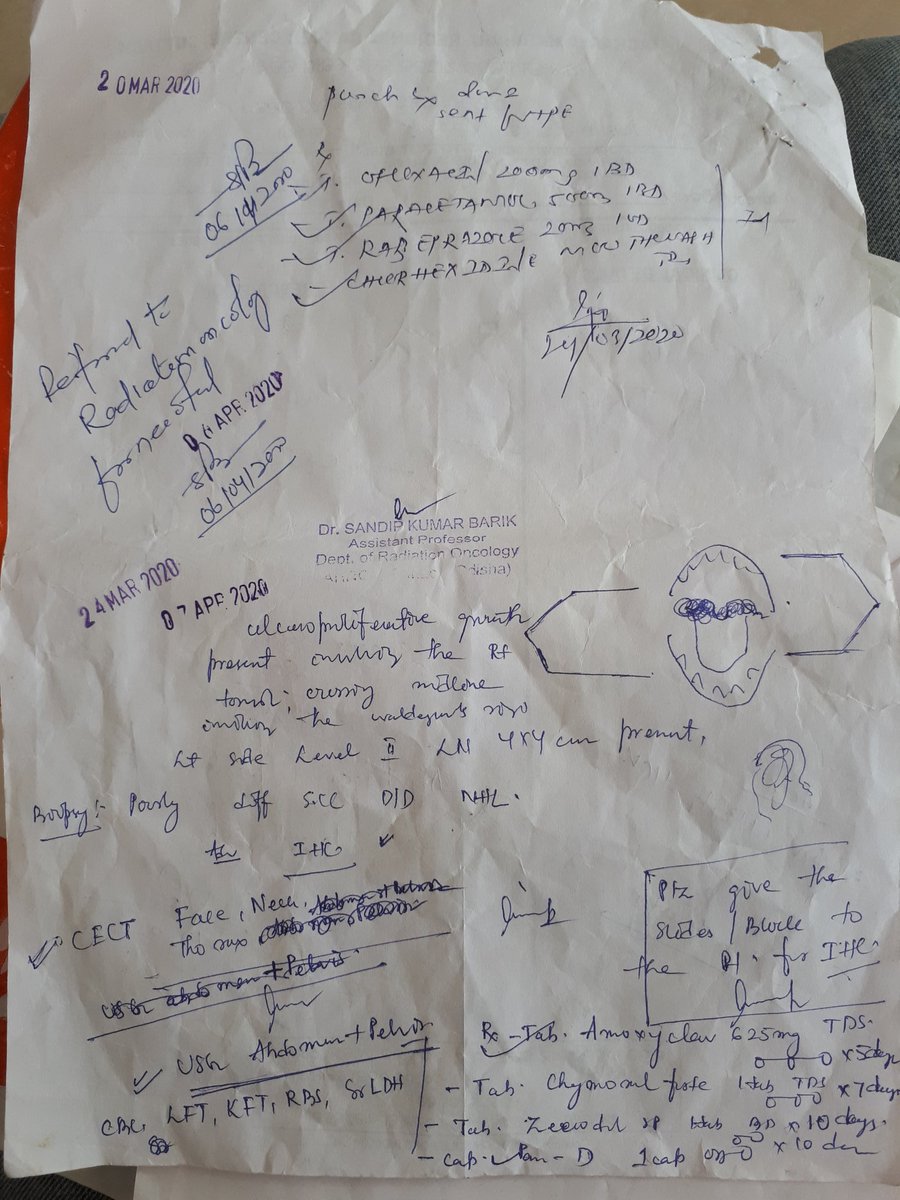 20 MAR 2020
punch bx done
sent for HPE
Rx
T. OFLOXACIN 200mg 1BD
T. PARACETAMOL 500mg 1BD
T. RABEPRAZOLE 20mg 1OD
CHLORHEXIDINE MOUTHWASH
06/04/2020
24/03/2020
Referred to
Radiation oncology
for needful
04 APR 2020
06/04/2020
Dr. SANDIP KUMAR BARIK
Assistant Professor
Dept. of Radiation Oncology
24 MAR 2020
07 APR 2020
ulceroproliferative growth
present involving the Rt
tonsil; crossing midline
involving the waldeyer's ring
Lt side Level II LN 4x4 cm present,
Biopsy:- Poorly diff SCC D/D NHL.
IHC
CECT Face, Neck,
Thorax
USG Abdomen + Pelvis
CBC, LFT, KFT, RBS, Sr LDH
Plz give the
slides/Block to
the Pt. for IHC.
Rx - Tab. Amoxyclav 625mg TDS x 5 days
- Tab. Chymoral forte 1tab TDS x 7 days
- Tab. Zerodol SP 1tab BD x 10 days.
- Cap. Pan-D 1cap OD x 10 days